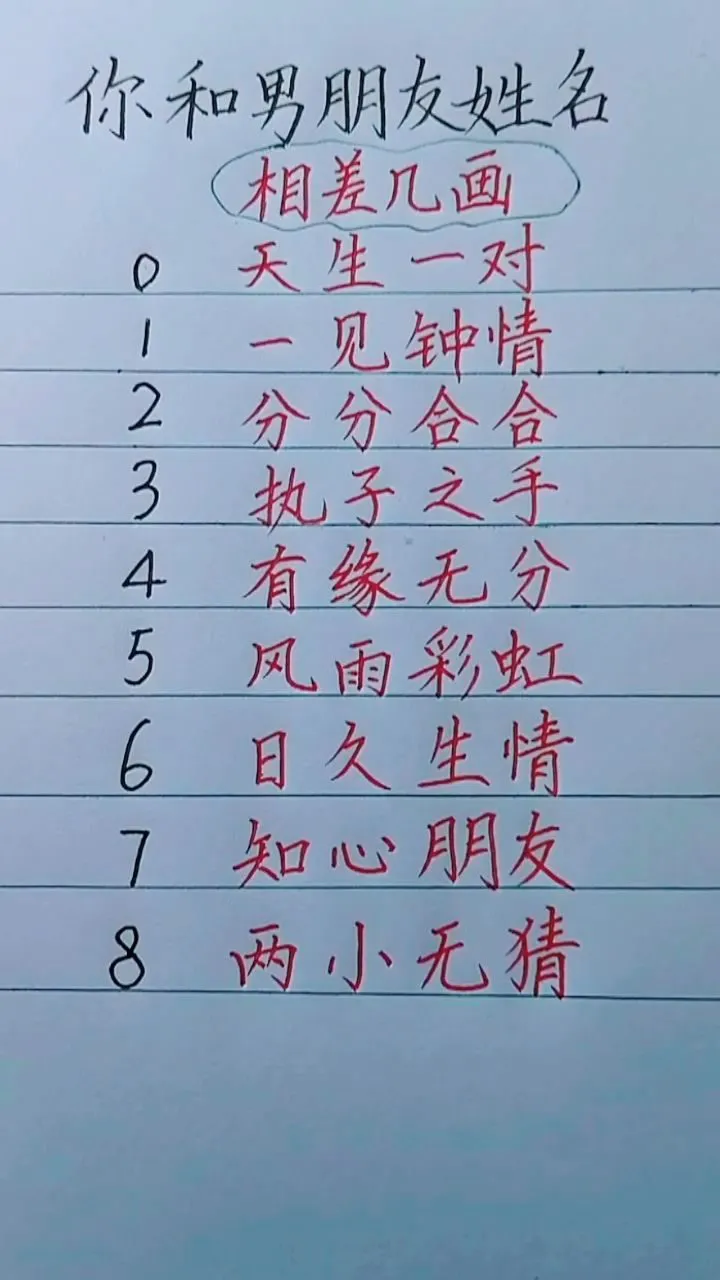 你和男朋友姓名
相差几画
0 天生一对
1 一见钟情
2 分分合合
3 执子之手
4 有缘无分
5 风雨彩虹
6 日久生情
7 知心朋友
8 两小无猜